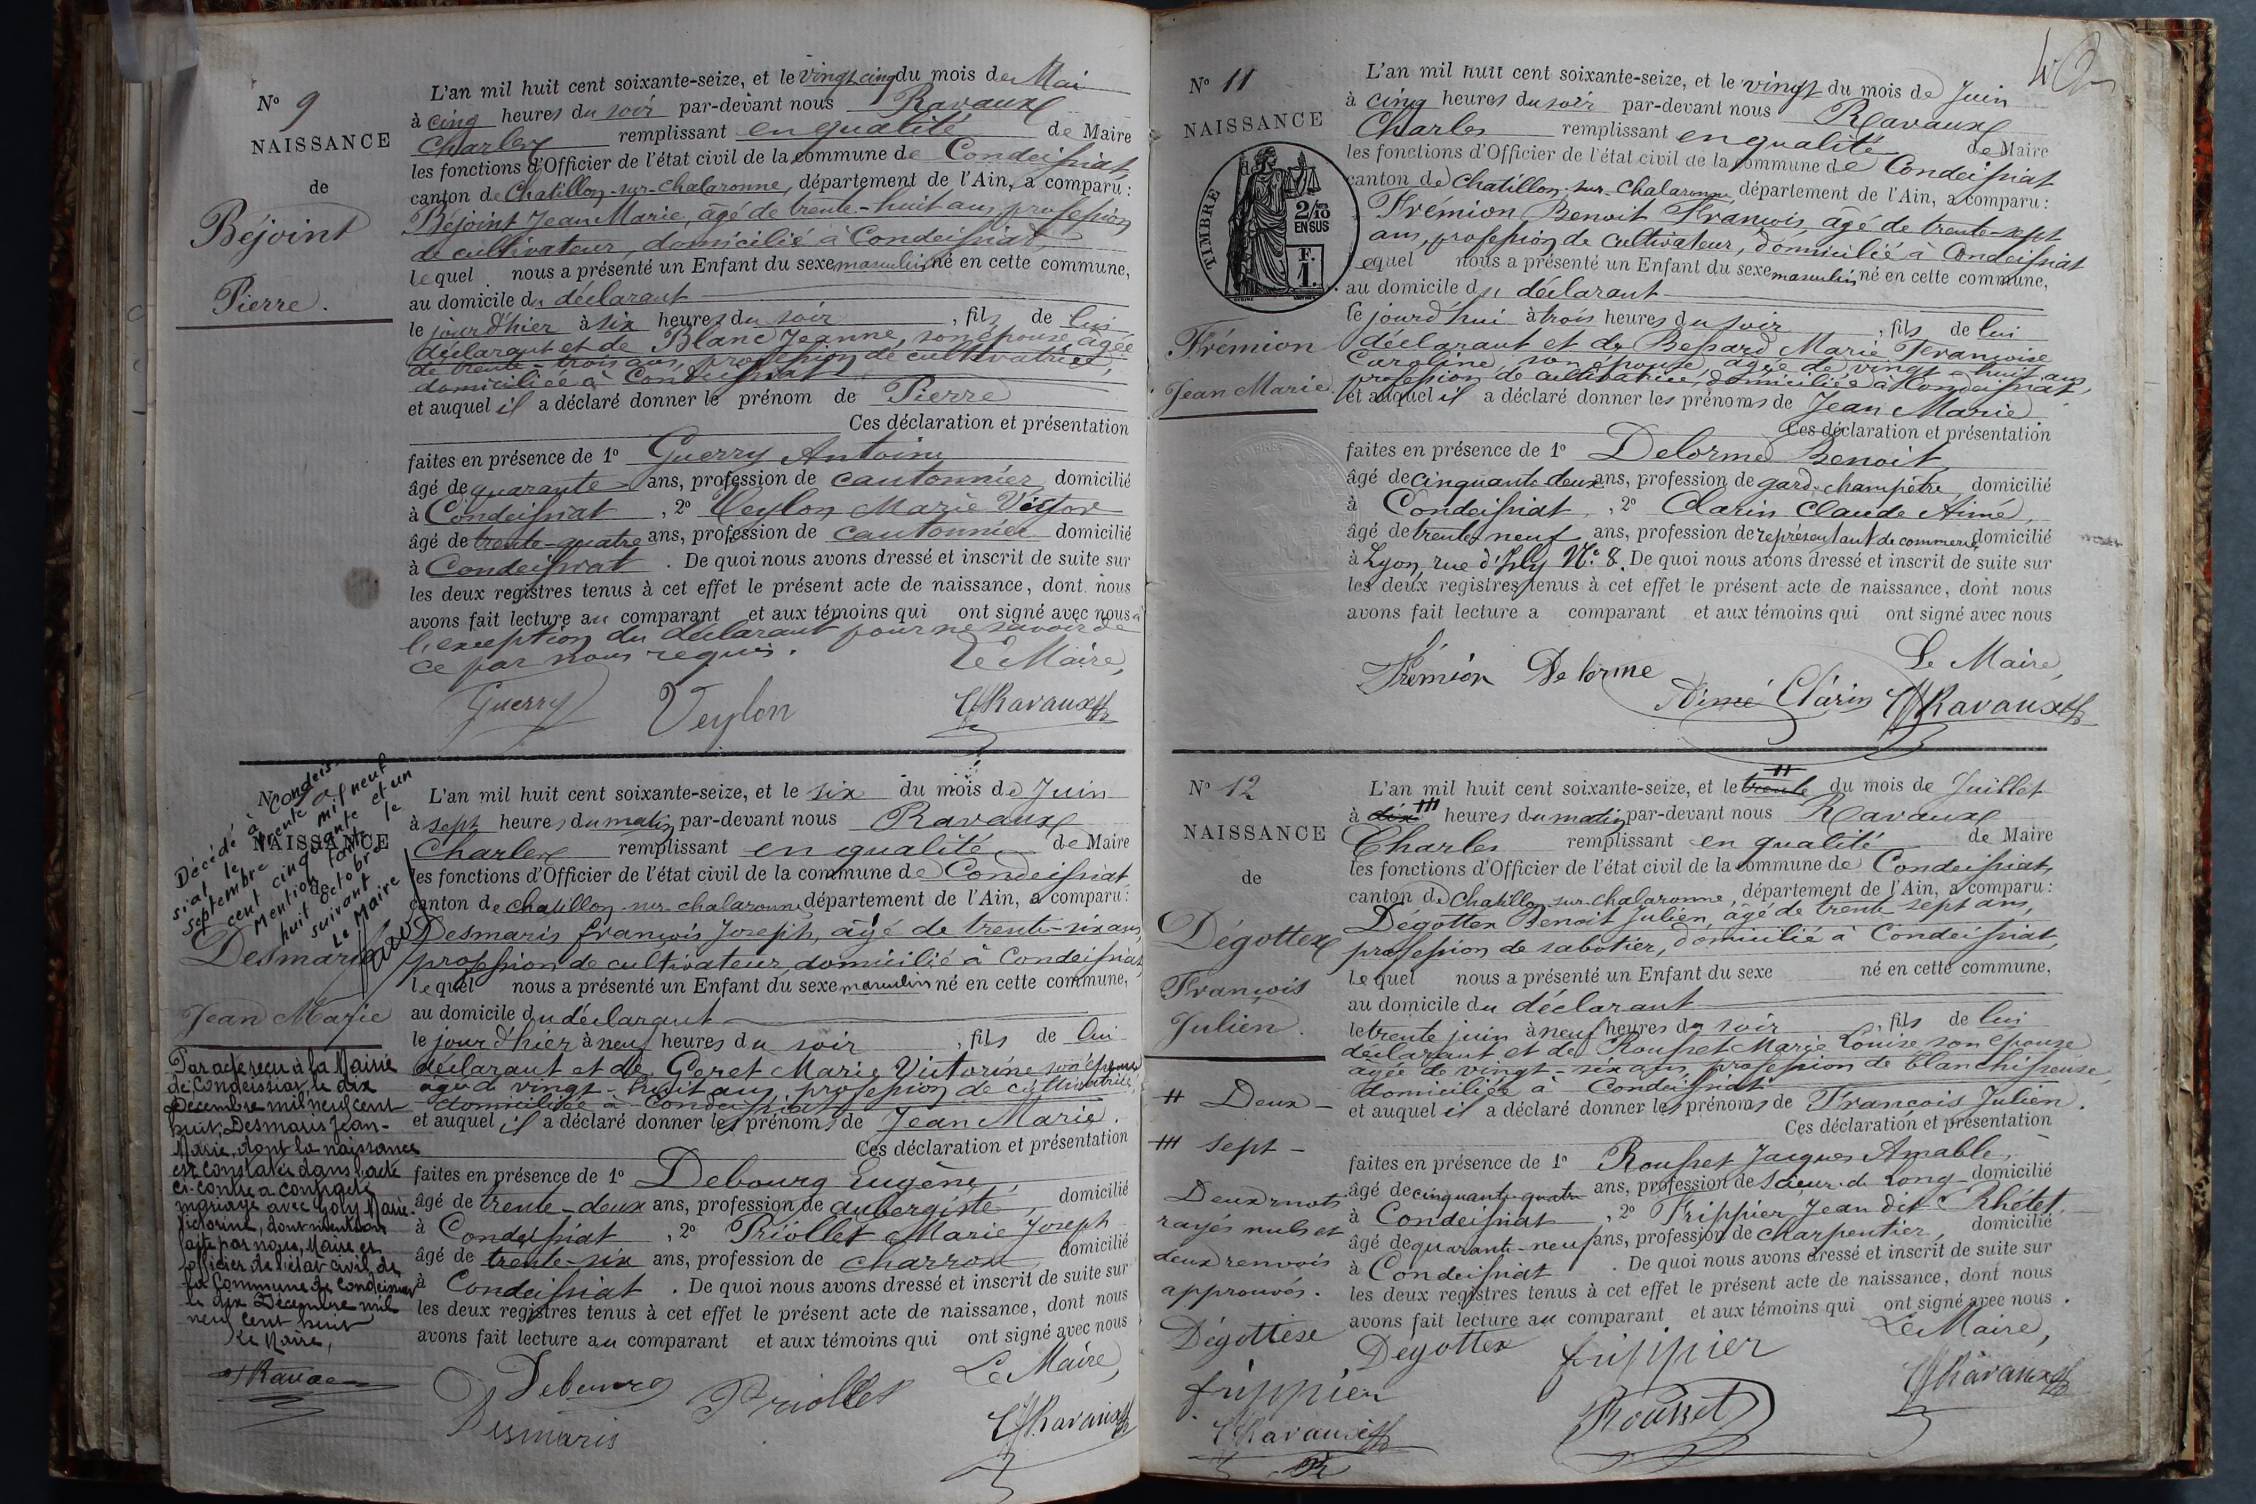 N° 9
NAISSANCE
de
Béjoint
Pierre.
L'an mil huit cent soixante-seize, et le vingt cinq du mois de Mai
à cinq heures du soir par-devant nous Ravaux
Charles remplissant en qualité de Maire
les fonctions d'Officier de l'état civil de la commune de Condeissiat,
canton de Chatillon-sur-Chalaronne, département de l'Ain, a comparu :
Béjoint Jean Marie, âgé de trente-huit ans, profession
de cultivateur, domicilié à Condeissiat,
lequel nous a présenté un Enfant du sexe masculin né en cette commune,
au domicile du déclarant
le jour d'hier à six heures du soir, fils de lui
déclarant et de Blanc Jeanne, son épouse, âgée
de trente-trois ans, profession de cultivatrice,
domiciliée à Condeissiat
et auquel il a déclaré donner le prénom de Pierre
Ces déclaration et présentation
faites en présence de 1° Guerry Antoine
âgé de quarante ans, profession de cantonnier domicilié
à Condeissiat, 2° Veylon Marie Victor
âgé de trente-quatre ans, profession de cantonnier domicilié
à Condeissiat. De quoi nous avons dressé et inscrit de suite sur
les deux registres tenus à cet effet le présent acte de naissance, dont nous
avons fait lecture au comparant et aux témoins qui ont signé avec nous à
l'exception du déclarant pour ne savoir de
ce par nous requis.
Le Maire,
Guerry Veylon Ravaux
N°
NAISSANCE
Décédé à Condeis-
siat le trente
septembre mil neuf
cent cinquante et un
Mention faite le
huit octobre
suivant
Le Maire
Desmaris
Jean Marie
Par acte reçu à la Mairie
de Condeissiat, le dix
Décembre mil neuf cent
huit, Desmaris Jean-
Marie, dont la naissance
est constatée dans l'acte
ci-contre a contracté
mariage avec Joly Marie-
Victorine, dont mention
faite par nous, Maire et
officier de l'état civil de
la Commune de Condeissiat
le dix Décembre mil
neuf cent huit
Le Maire,
L'an mil huit cent soixante-seize, et le six du mois de Juin
à sept heures du matin par-devant nous Ravaux
Charles remplissant en qualité de Maire
les fonctions d'Officier de l'état civil de la commune de Condeissiat,
canton de Chatillon-sur-Chalaronne, département de l'Ain, a comparu :
Desmaris françois Joseph, âgé de trente-six ans,
profession de cultivateur, domicilié à Condeissiat,
lequel nous a présenté un Enfant du sexe masculin né en cette commune,
au domicile du déclarant
le jour d'hier à neuf heures du soir, fils de lui
déclarant et de Goret Marie Victorine son épouse
âgée de vingt-huit ans, profession de cultivatrice,
domiciliée à Condeissiat
et auquel il a déclaré donner les prénoms de Jean Marie.
Ces déclaration et présentation
faites en présence de 1° Debourg Eugène,
âgé de trente-deux ans, profession de aubergiste, domicilié
à Condeissiat, 2° Priollet Marie Joseph
âgé de trente-six ans, profession de charron domicilié
à Condeissiat. De quoi nous avons dressé et inscrit de suite sur
les deux registres tenus à cet effet le présent acte de naissance, dont nous
avons fait lecture au comparant et aux témoins qui ont signé avec nous
Le Maire,
Debourg Priollet
Desmaris Ravaux
N° 11
NAISSANCE
de
TIMBRE
2/10
EN SUS
F.
1.
Frémion
Jean Marie.
L'an mil huit cent soixante-seize, et le vingt du mois de Juin
à cinq heures du soir par-devant nous Ravaux
Charles remplissant en qualité de Maire
les fonctions d'Officier de l'état civil de la commune de Condeissiat
canton de Chatillon-sur-Chalaronne, département de l'Ain, a comparu :
Frémion Benoit François, âgé de trente-sept
ans, profession de cultivateur, domicilié à Condeissiat
lequel nous a présenté un Enfant du sexe masculin né en cette commune,
au domicile du déclarant
le jourd'hui à trois heures du soir, fils de lui
déclarant et de Bessard Marie Françoise
Caroline son épouse, âgée de vingt-huit ans,
profession de cultivatrice, domiciliée à Condeissiat,
et auquel il a déclaré donner les prénoms de Jean Marie
Ces déclaration et présentation
faites en présence de 1° Delorme Benoit
âgé de cinquante deux ans, profession de garde-champêtre, domicilié
à Condeissiat, 2° Clarin Claude Aimé,
âgé de trente neuf ans, profession de représentant de commerce, domicilié
à Lyon, rue d'Isly N° 8. De quoi nous avons dressé et inscrit de suite sur
les deux registres tenus à cet effet le présent acte de naissance, dont nous
avons fait lecture a comparant et aux témoins qui ont signé avec nous
Le Maire,
Frémion Delorme
Aimé Clarin Ravaux
N° 12
NAISSANCE
de
Dégottex
François
Julien.
Deux
sept
Deux mots
rayés nuls et
deux renvois
approuvés.
Dégottex
frippier
Ravaux
L'an mil huit cent soixante-seize, et le trente du mois de Juillet
à dix heures du matin par-devant nous Ravaux
Charles remplissant en qualité de Maire
les fonctions d'Officier de l'état civil de la commune de Condeissiat,
canton de Chatillon-sur-Chalaronne, département de l'Ain, a comparu :
Dégottex Benoit Julien, âgé de trente sept ans,
profession de sabotier, domicilié à Condeissiat,
lequel nous a présenté un Enfant du sexe né en cette commune,
au domicile du déclarant
le trente juin à neuf heures du soir, fils de lui
déclarant et de Rousset Marie Louise son épouse
âgée de vingt-six ans, profession de blanchisseuse,
domiciliée à Condeissiat
et auquel il a déclaré donner les prénoms de François Julien.
Ces déclaration et présentation
faites en présence de 1° Rousset Jacques Amable,
âgé de cinquante-quatre ans, profession de scieur de long domicilié
à Condeissiat, 2° Frippier Jean dit Rhétet,
âgé de quarante-neuf ans, profession de charpentier, domicilié
à Condeissiat. De quoi nous avons dressé et inscrit de suite sur
les deux registres tenus à cet effet le présent acte de naissance, dont nous
avons fait lecture au comparant et aux témoins qui ont signé avec nous.
Le Maire,
Degottex frippier
Rousset Ravaux